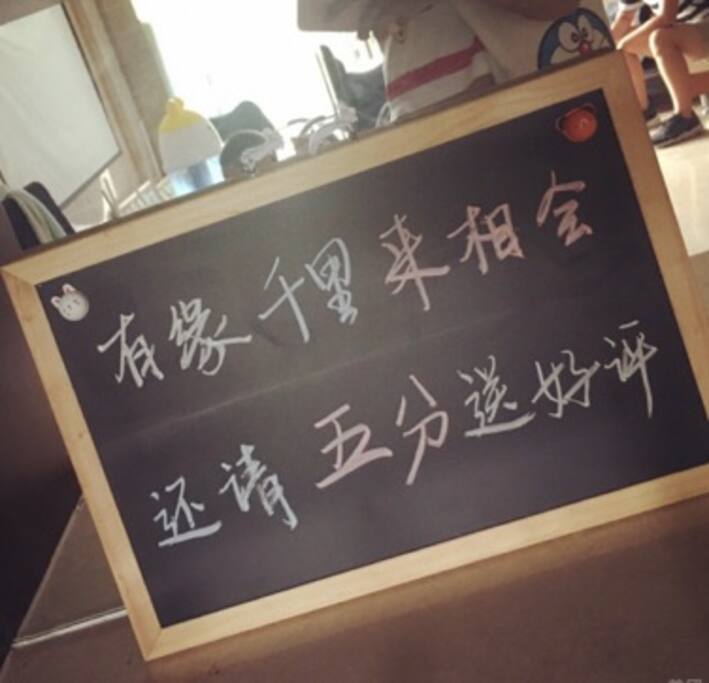 有缘千里来相会
还请五分送好评